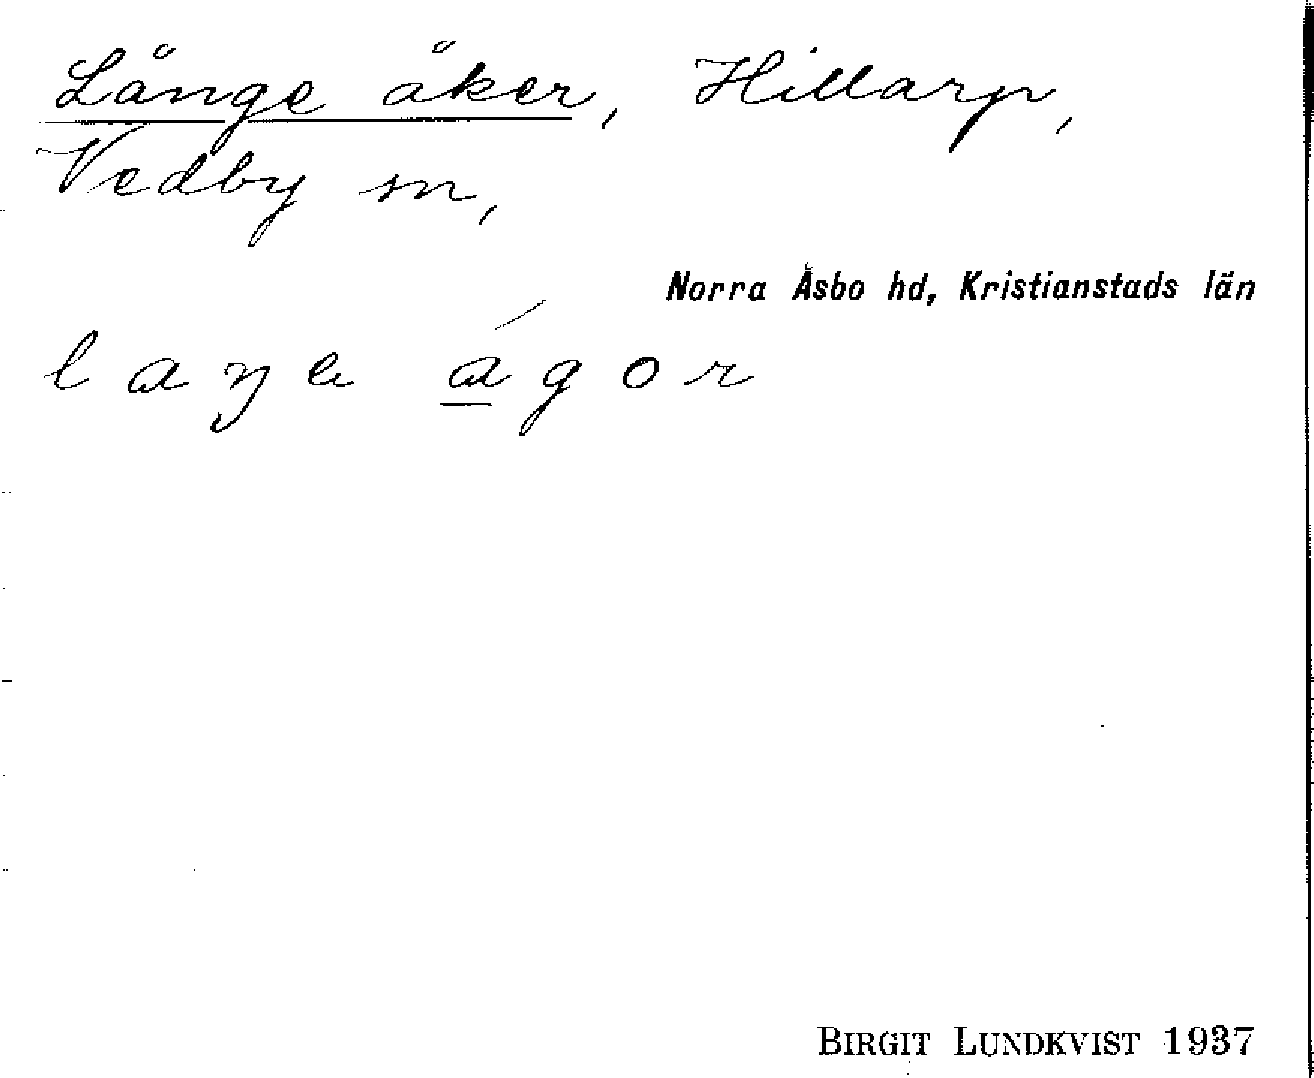 Långe åker, Hillarp,
Vedby sn,
Norra Åsbo hd, Kristianstads län
laŋe ágor
BIRGIT LUNDKVIST 1937